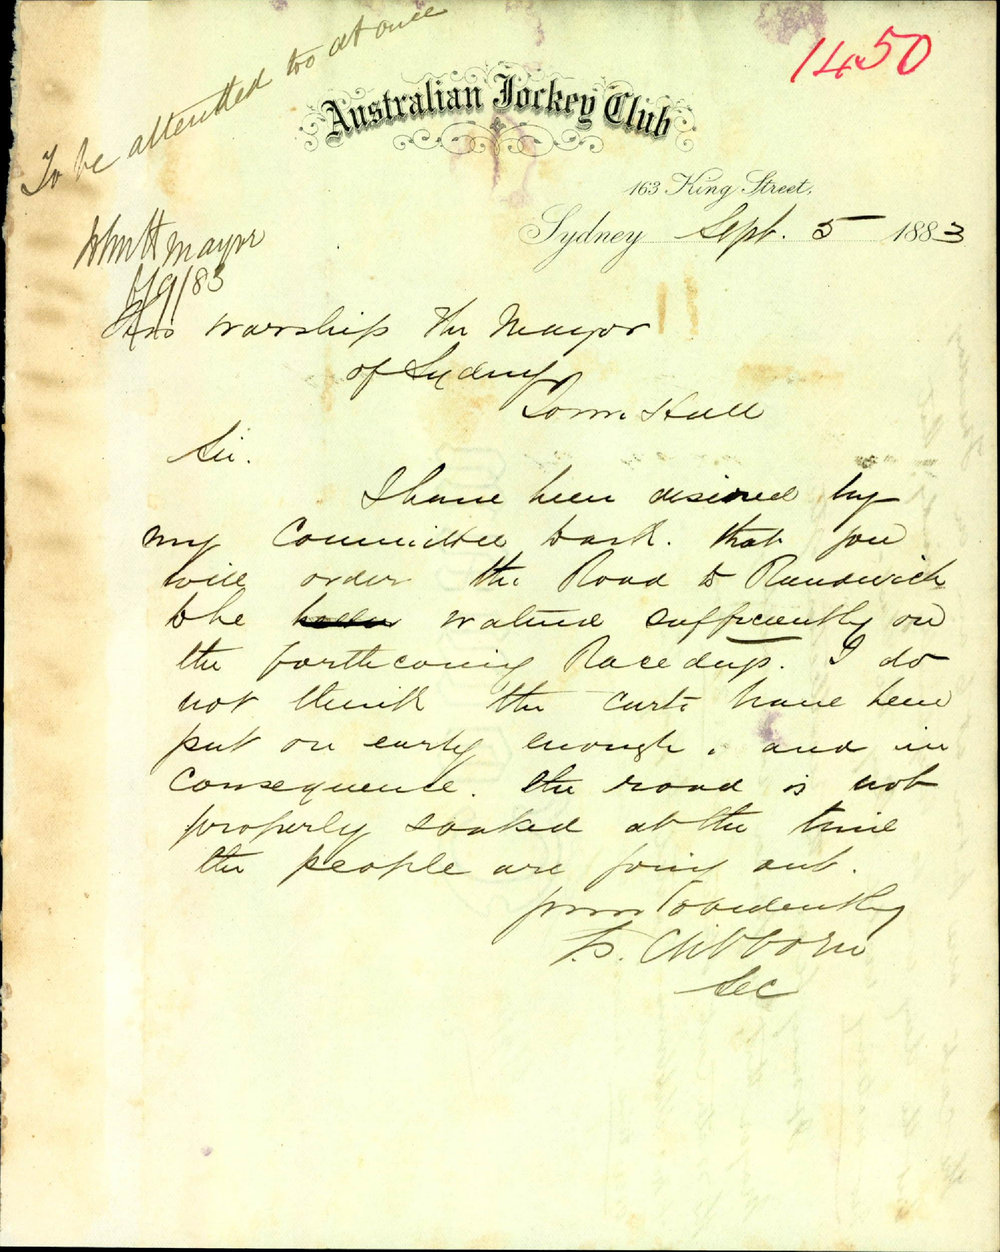 1450
To be attended to at once
Mayor
6/9/83
Australian Jockey Club
163 King Street,
Sydney Sept. 5 1883
His worship the Mayor
of Sydney
Town Hall
Sir.
I have been desired by
my Committee to ask. that you
will order the Road to Randwick
to be watered sufficiently on
the forthcoming Race days. I do
not think the carts have been
put on early enough, and in
consequence. the road is not
properly soaked at the time
the people are going out.
yours obediently
T.S. Clibborn
Sec